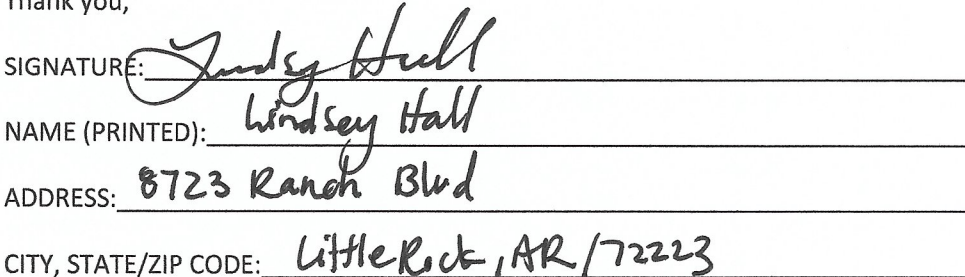 Thank you,
SIGNATURE: Lindsey Hall
NAME (PRINTED): Lindsey Hall
ADDRESS: 8723 Ranch Blvd
CITY, STATE/ZIP CODE: Little Rock, AR/72223